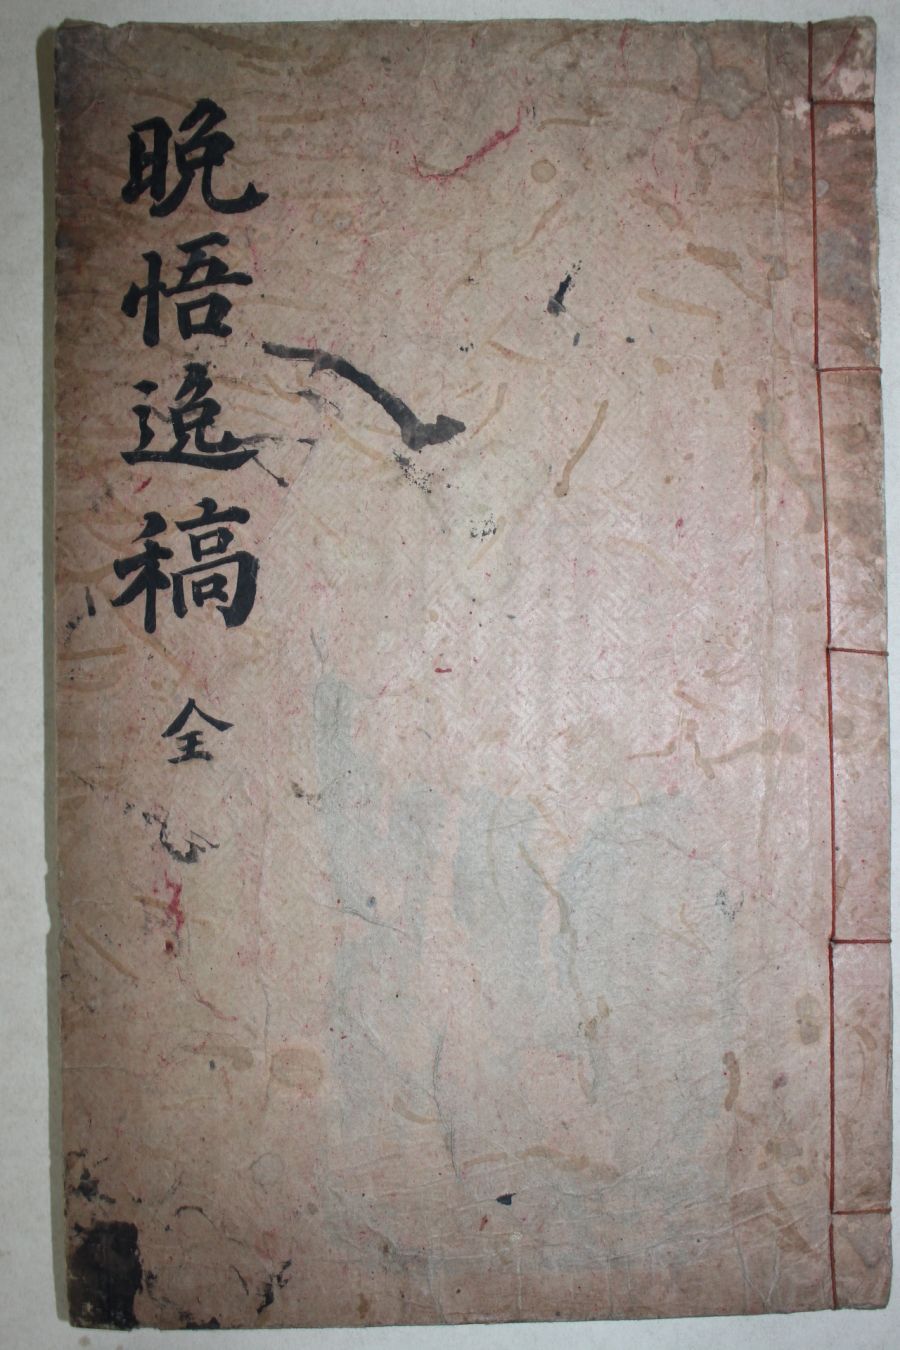 晩悟逸稿 全